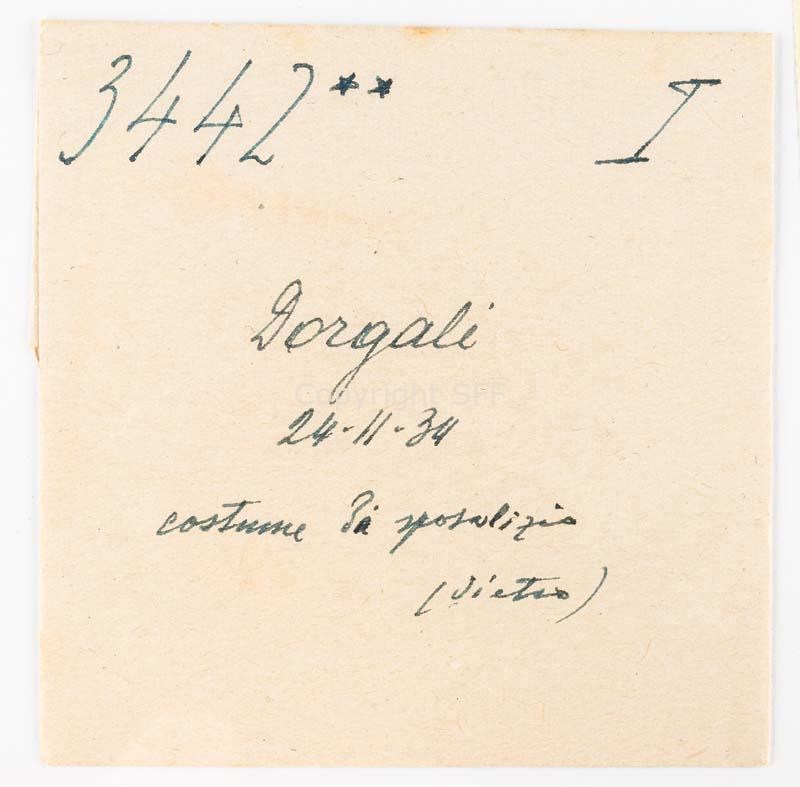 3442** I
Dorgali
Copyright SFF
24-11-34
costume di sposalizio
(dietro)